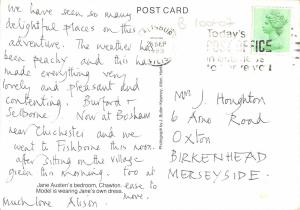 We have seen so many
delightful places on this
adventure. The weather has
been peachy and this has
made everything very
lovely and pleasant and
contenting. Burford &
Selborne! Now at Bosham
near Chichester and we
went to Fishbourne this noon
after sitting on the village
green this morning. Too at
ease to
much love, Alison. more.
Jane Austen's bedroom, Chawton.
Model is wearing Jane's own dress.
POST CARD
SEP
Today's
POST OFFICE
Mrs J. Houghton
6 Arno Road
Oxton
BIRKENHEAD
MERSEYSIDE.